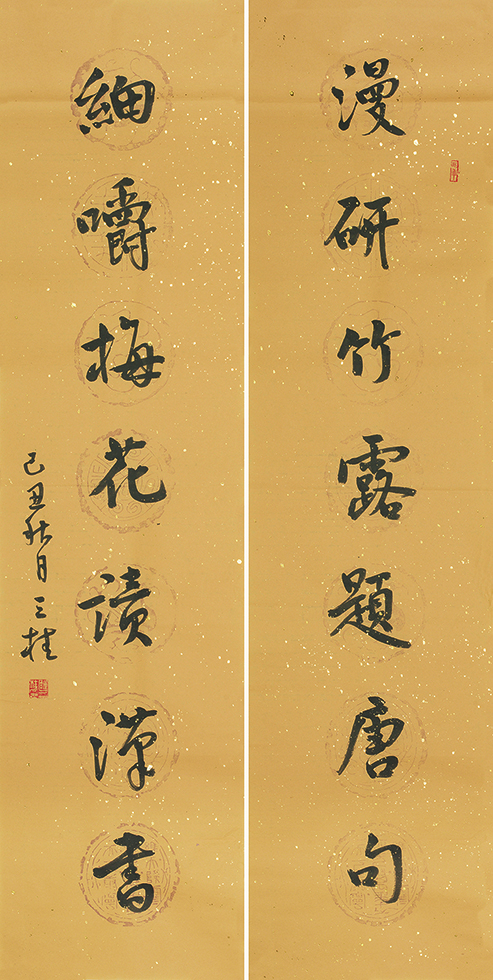 漫研竹露題唐句
細嚼梅花讀漢書
己丑秋月三桂